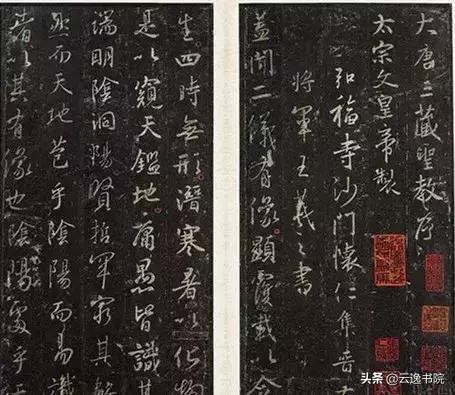 大唐三藏聖教序
太宗文皇帝製
弘福寺沙門懷仁集晉
將軍王羲之書
蓋聞二儀有像顯覆載以含
生四時無形潛寒暑以化物
是以窺天鑑地庸愚皆識其
端明陰洞陽賢哲罕窮其數
然而天地苞乎陰陽而易識
者以其有像也陰陽處乎天
头条 @云逸书院